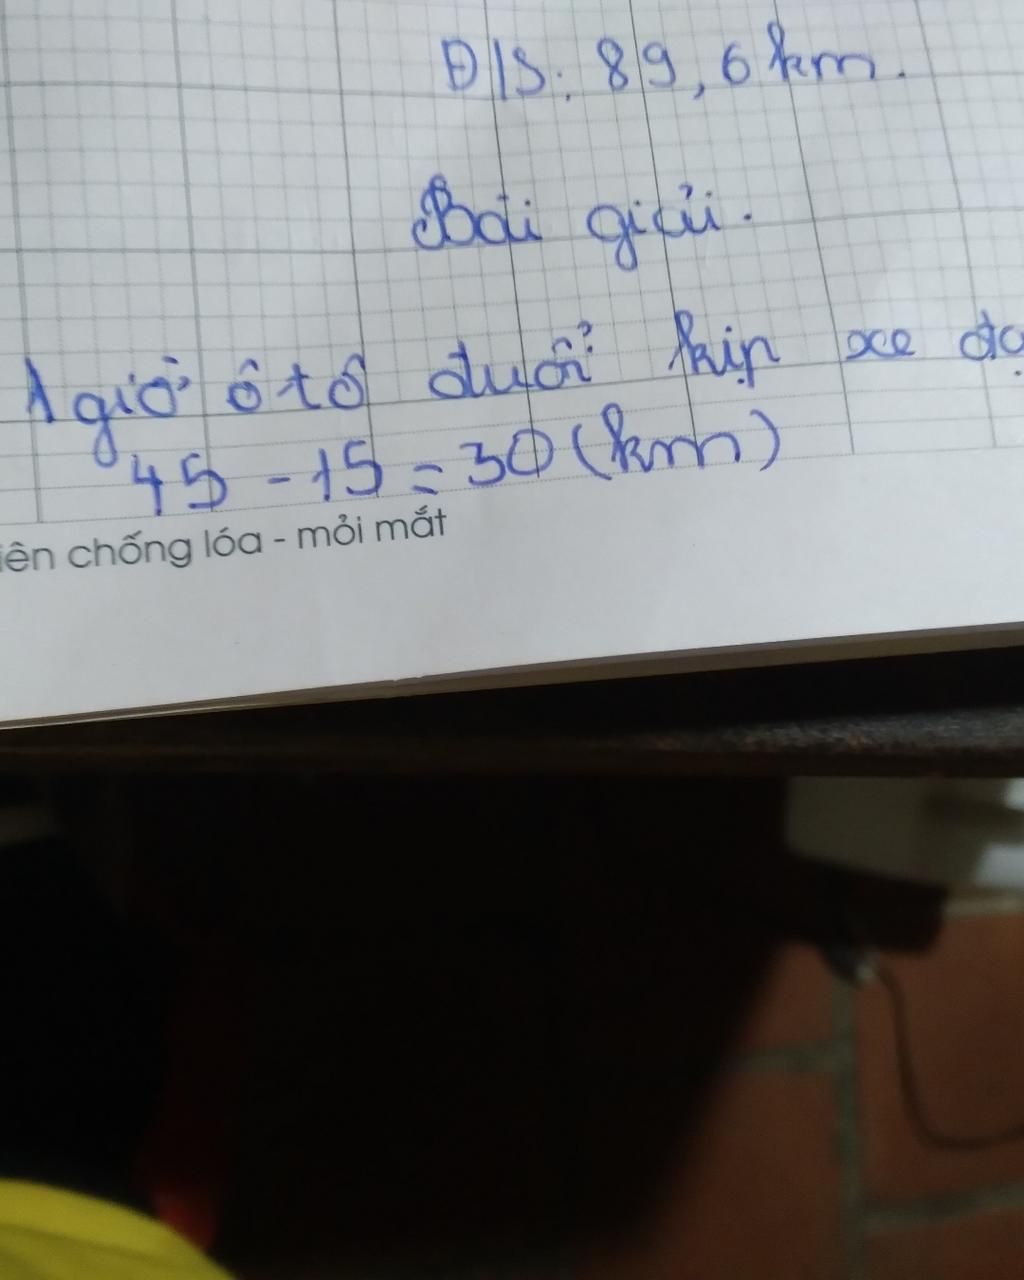 Đ/S: 89,6 km.
Bài giải.
1 giờ ô tô đuổi kịp xe đạ
45 - 15 = 30 (km)
iên chống lóa - mỏi mắt